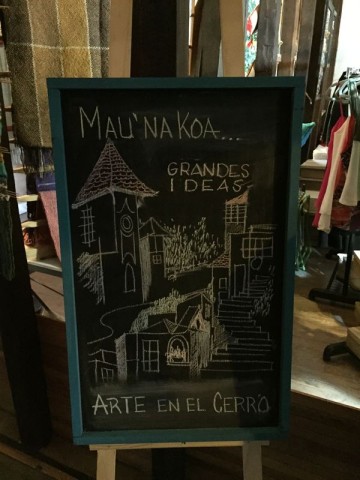 MAU'NA KOA...
GRANDES
IDEAS
ARTE EN EL CERRO